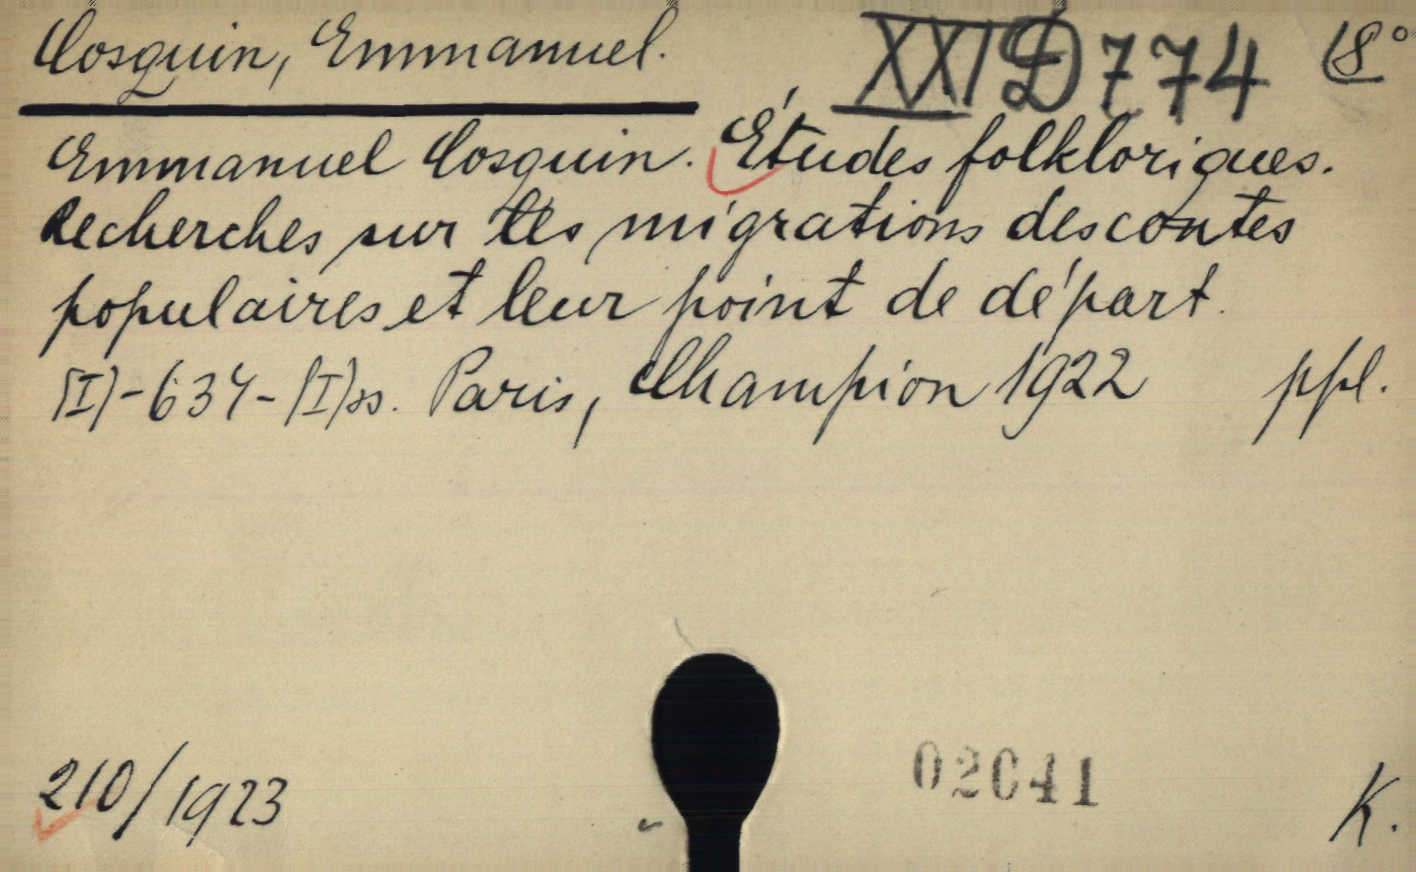 Cosquin, Emmanuel. XXI D 774 8°
Emmanuel Cosquin. Études folkloriques.
Recherches sur les migrations des contes
populaires et leur point de départ.
[I]-634-[I] ss. Paris, Champion 1922 ppl.
210/1923 02041 K.